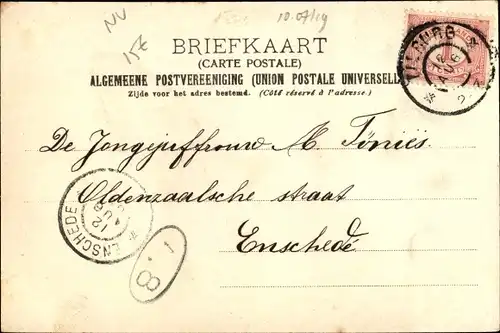 NV
15€
10.07/19
BRIEFKAART
(CARTE POSTALE)
ALGEMEENE POSTVEREENIGING (UNION POSTALE UNIVERSELLE)
Zijde voor het adres bestemd. (Côté réservé à l'adresse.)
TILBURG
De Jongejuffrouw M. Töniës
Oldenzaalsche straat
Enschedé
ENSCHEDE
12
AUG
8.1